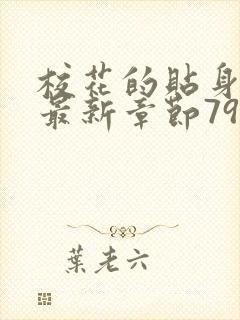 校花的貼身
最新章節79
葉老六